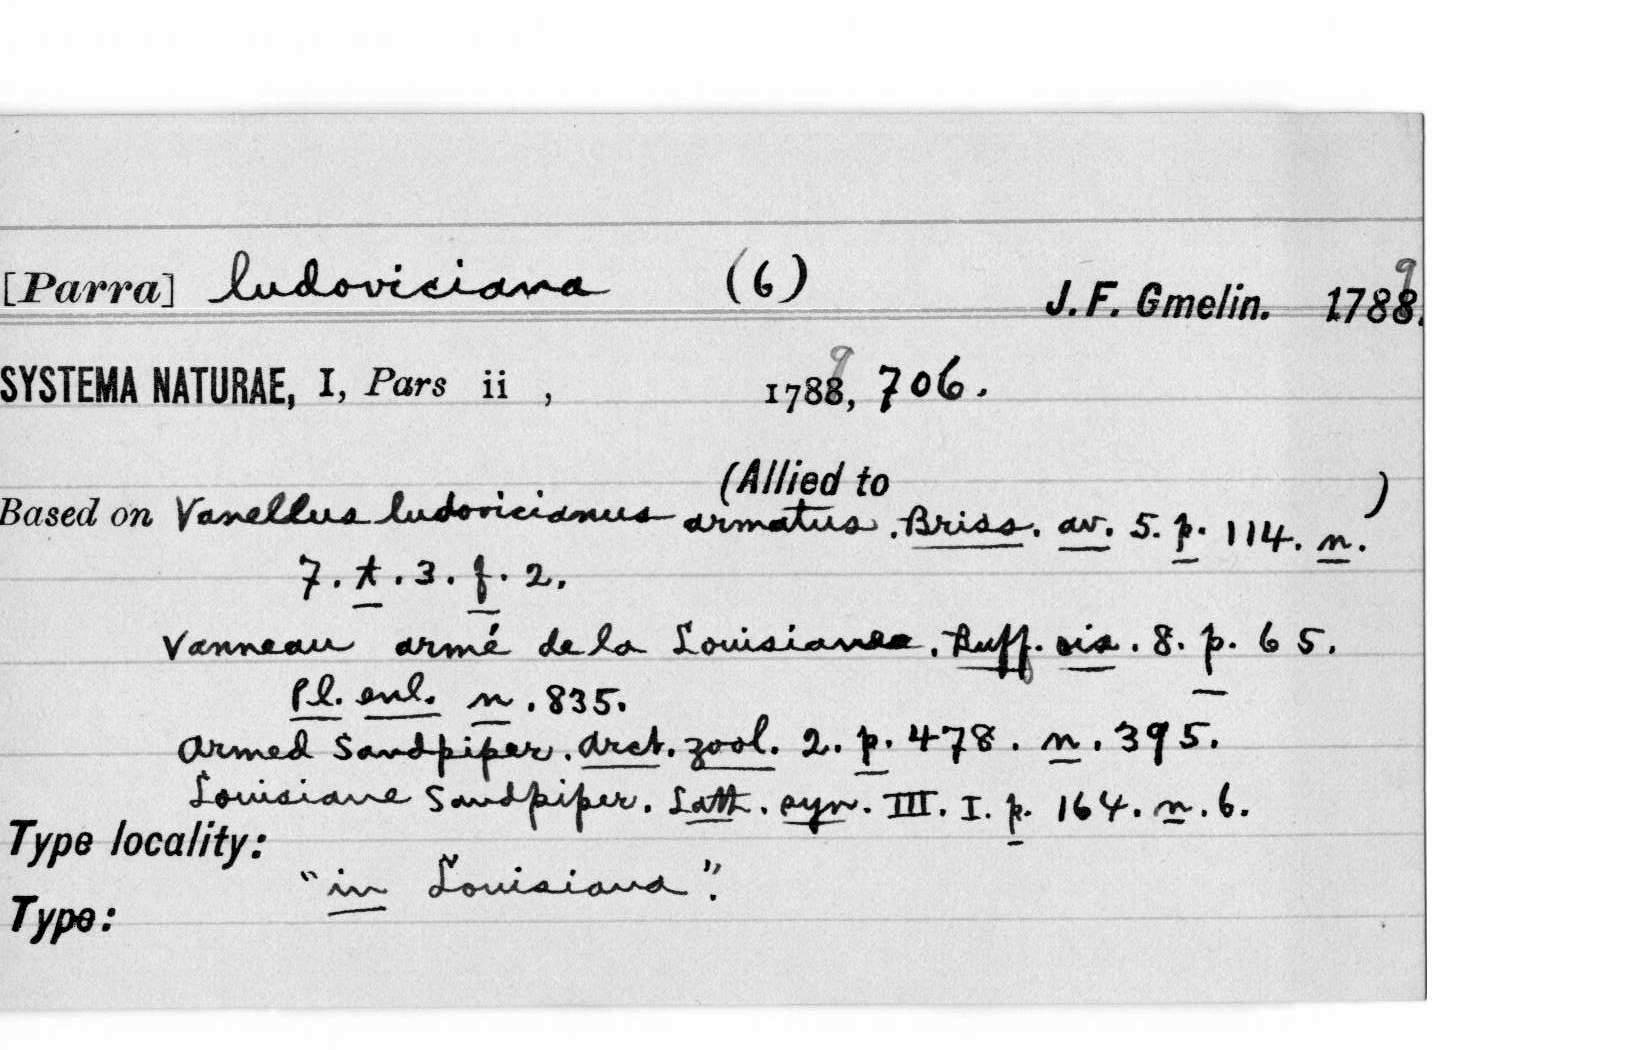 [Parra] ludoviciana (6) J. F. Gmelin. 1788.9
SYSTEMA NATURAE, I, Pars ii , 1788,9 706.
(Allied to )
Based on Vanellus ludovicianus armatus. Briss. av. 5. p. 114. n.
7. t. 3. f. 2.
Vanneau armé de la Louisiane. Buff. ois. 8. p. 65.
Pl. enl. n. 835.
Armed Sandpiper. Arct. zool. 2. p. 478. n. 395.
Louisiane Sandpiper. Lath. syn. III. I. p. 164. n. 6.
Type locality:
"in Louisiana".
Type: